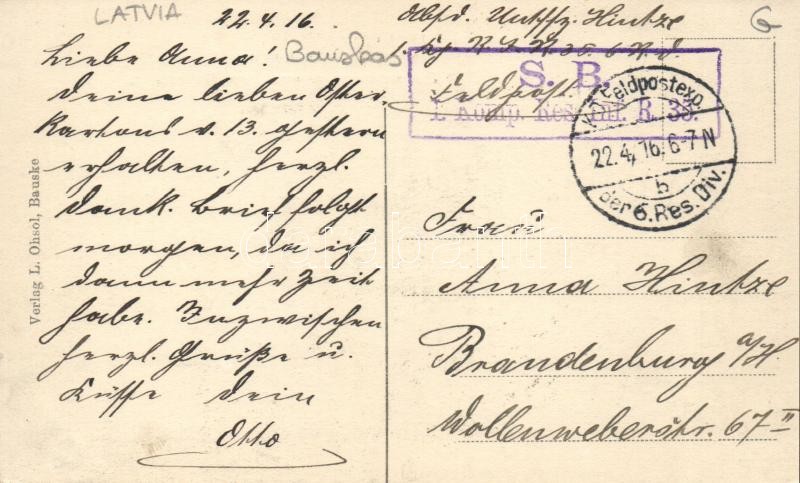 LATVIA
22.4.16.
Absd. Untffz. Hintze
G
Liebe Anna!
Bauskas
R. I. R. 35. 6. R. D.
S. B.
Feldpost.
1. Komp. Res. Inf. R. 35.
K.D. Feldpostexp.
22.4.16. 6-7 N
b
der 6. Res. Div.
Deine lieben Oster-
kartons v. 13. gestern
erhalten, herzl.
Dank. Brief folgt
morgen, da ich
dann mehr Zeit
habe. Inzwischen
herzl. Grüße u.
Küsse Dein
Otto
Verlag L. Ohsol, Bauske
Frau
Anna Hintze
Brandenburg a/H.
Wollenweberstr. 67 II
darabanth